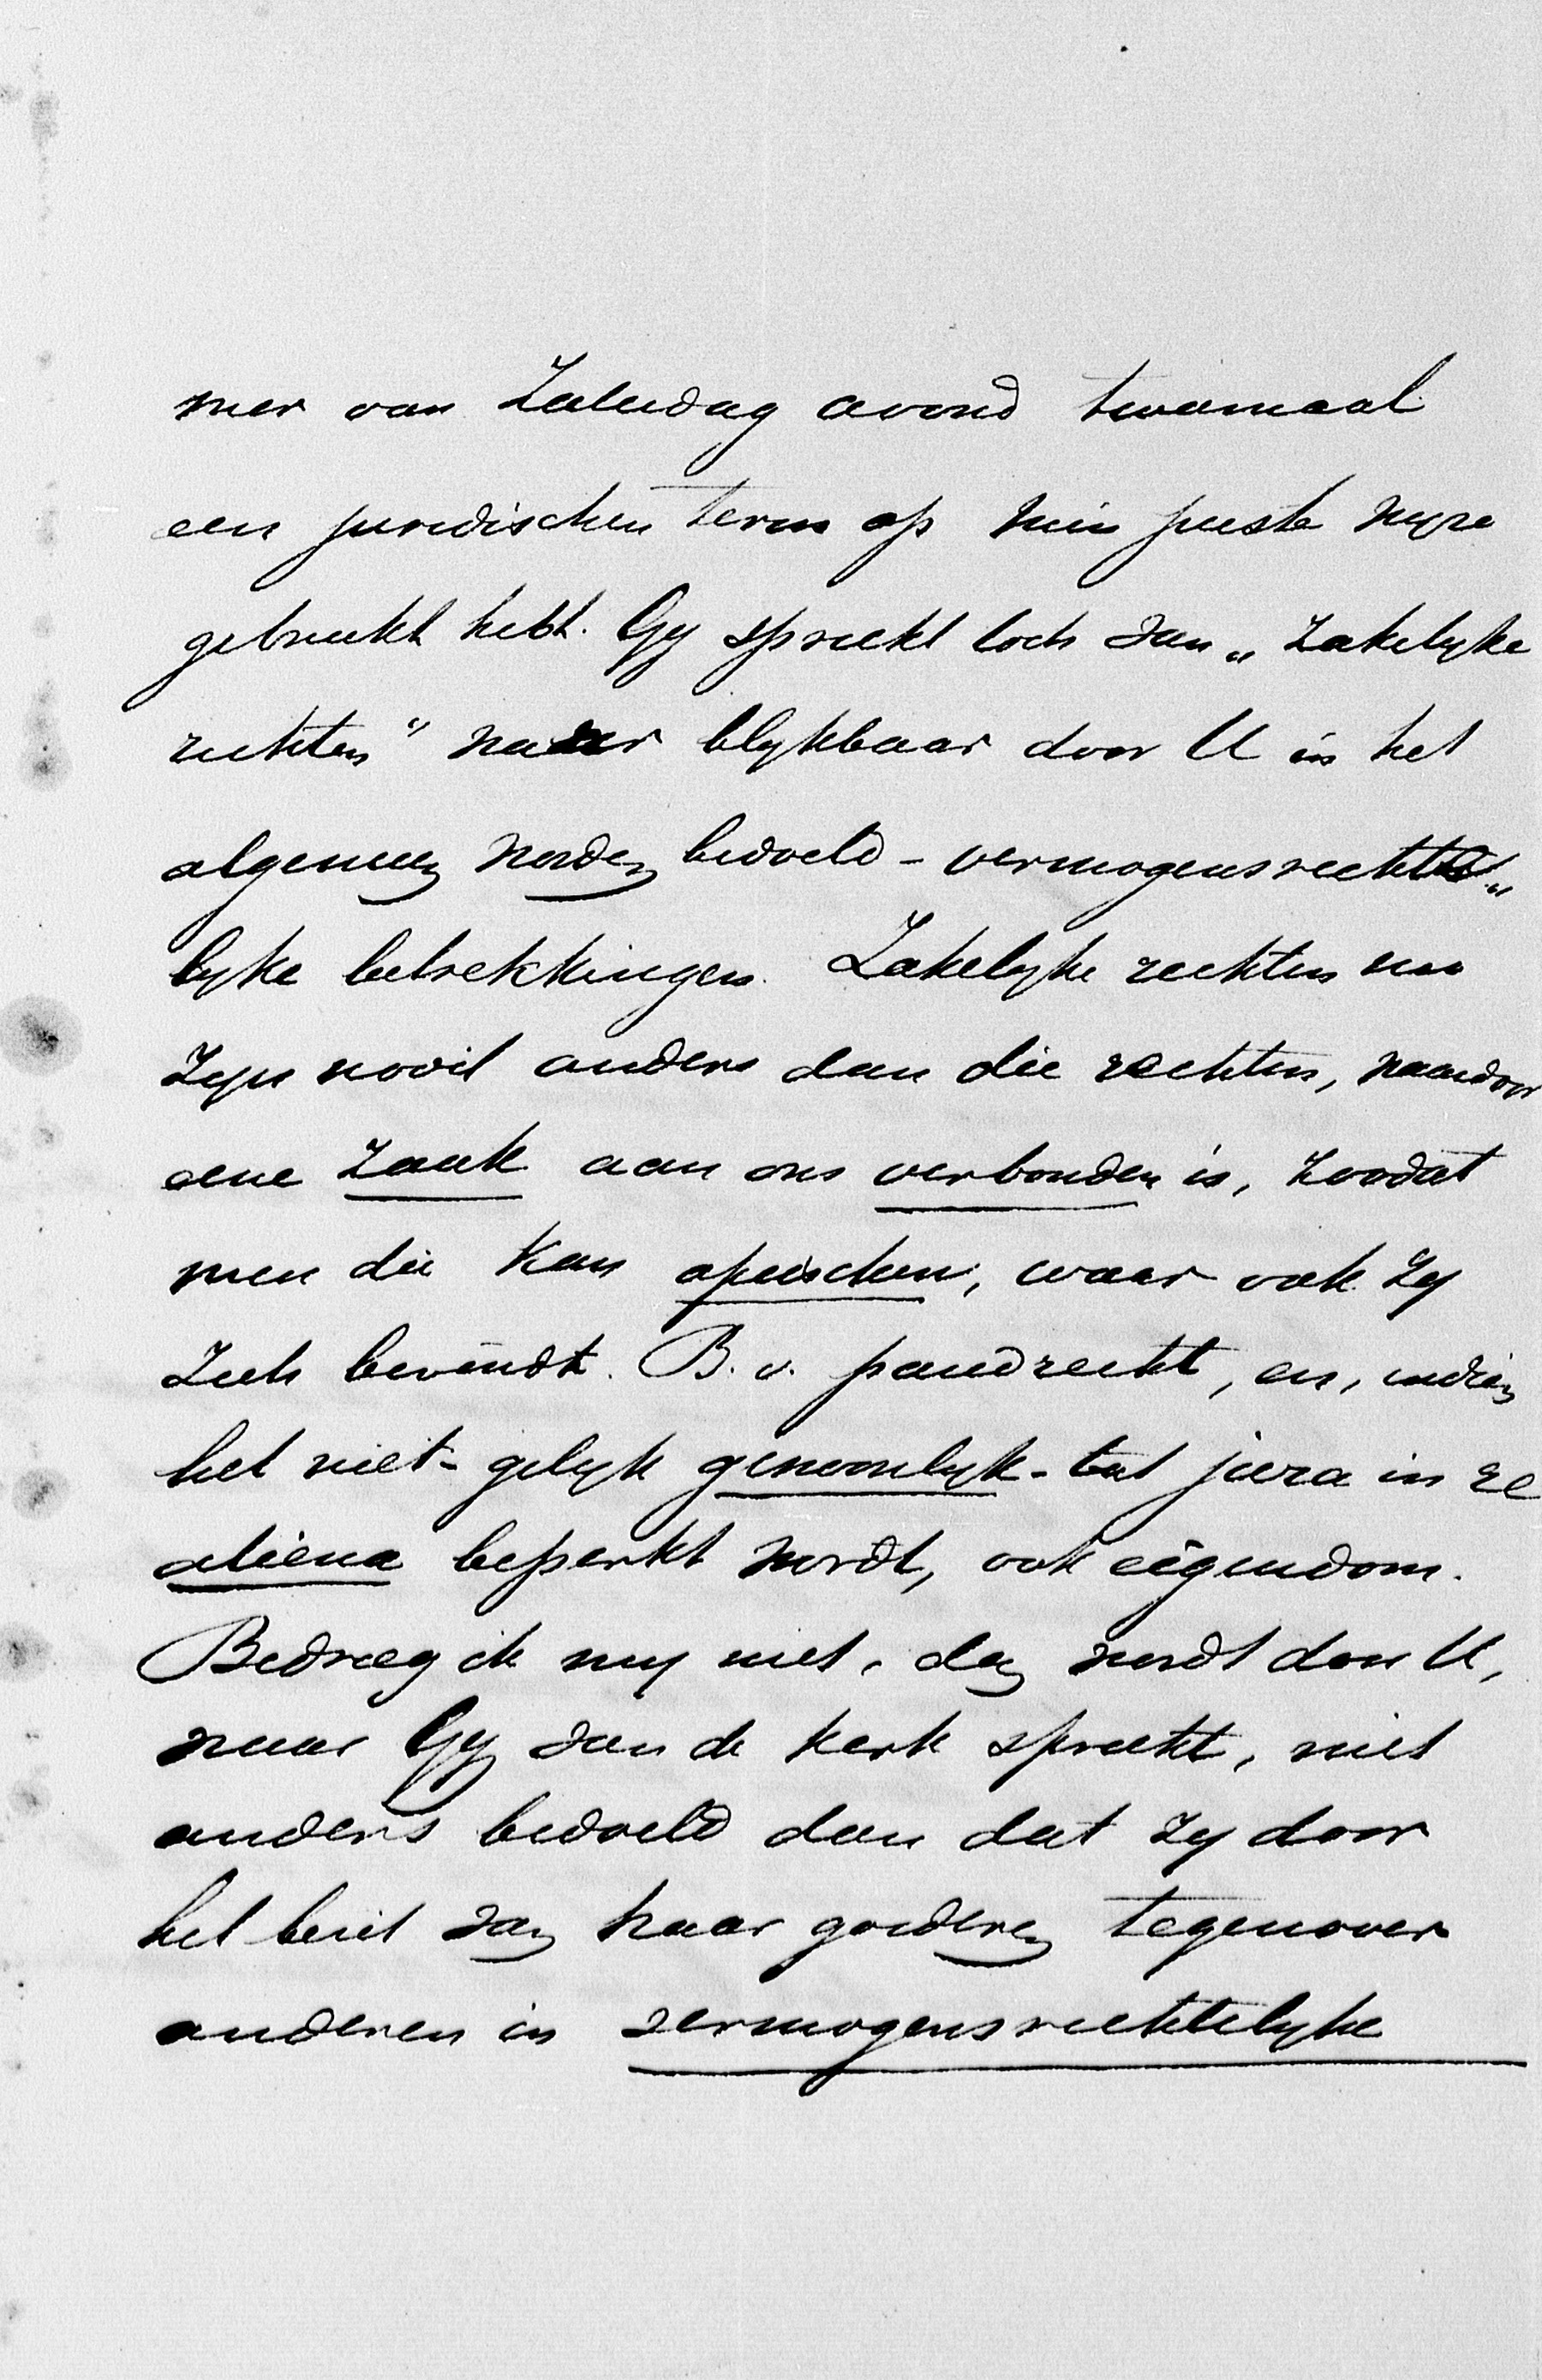 mer van Zaterdag avond tweemaal
een juridischen term op min juiste wyze
gebruikt hebt. Gy spreekt toch van „Zakelyke
rechten" waar blykbaar door U in het
algemeen worden bedoeld - vermogensrechte„
lyke betrekkingen. Zakelyke rechten nu
zyn nooit anders dan die rechten, waardoor
eene zaak aan ons verbonden is, zoodat
men die kan opeischen, waar ook zy
zich bevindt. B.v. pandrecht, en, indien
het niet - gelyk gewoonlyk - tot jura in re
aliena beperkt wordt, ook eigendom.
Bedrieg ik my niet, dan wordt door U,
waar Gy van de kerk spreekt, niet
anders bedoeld dan dat zy door
het bezit van haar goederen tegenover
anderen in vermogensrechtelyke